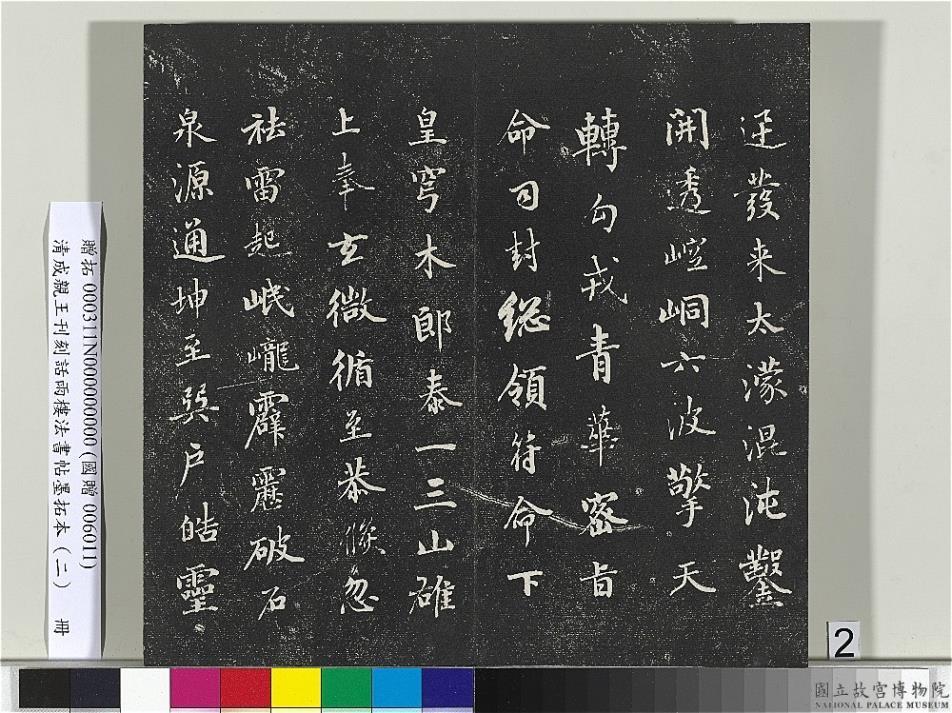 發来太濛混沌鑿
開透崆峒六波擎天
轉勾戎青華密旨
命司封総領符命下
皇穹木郎泰一三山雄
上奉玄微循至恭倏忽
祛雷起岷巄霹靂破石
泉源通坤至巽户皓靈
贈拓 000311N000000000 (國贈 006011)
清成親王刊刻話雨樓法書帖墨拓本(二) 冊
2
國立故宮博物院
NATIONAL PALACE MUSEUM